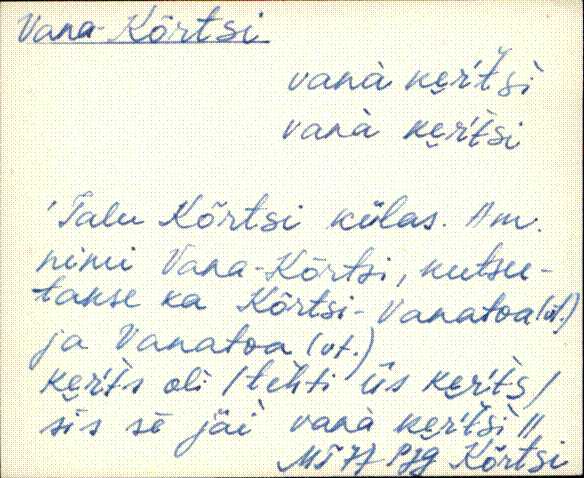 Vana-Kõrtsi
vanà ke̮r̀t̆śì
vanà ke̮r̀tśi
'Talu Kõrtsi külas. Am.
nimi Vana-Kõrtsi, kutsu-
takse ka Kõrtsi-Vanatoa (vt.)
ja Vanatoa (vt.)
ke̮r̀t́s oĺi / tèhti ūs ke̮r̀t́s /
sis sē jäi vanà ke̮r̀t̆śì //
Kõrtsi